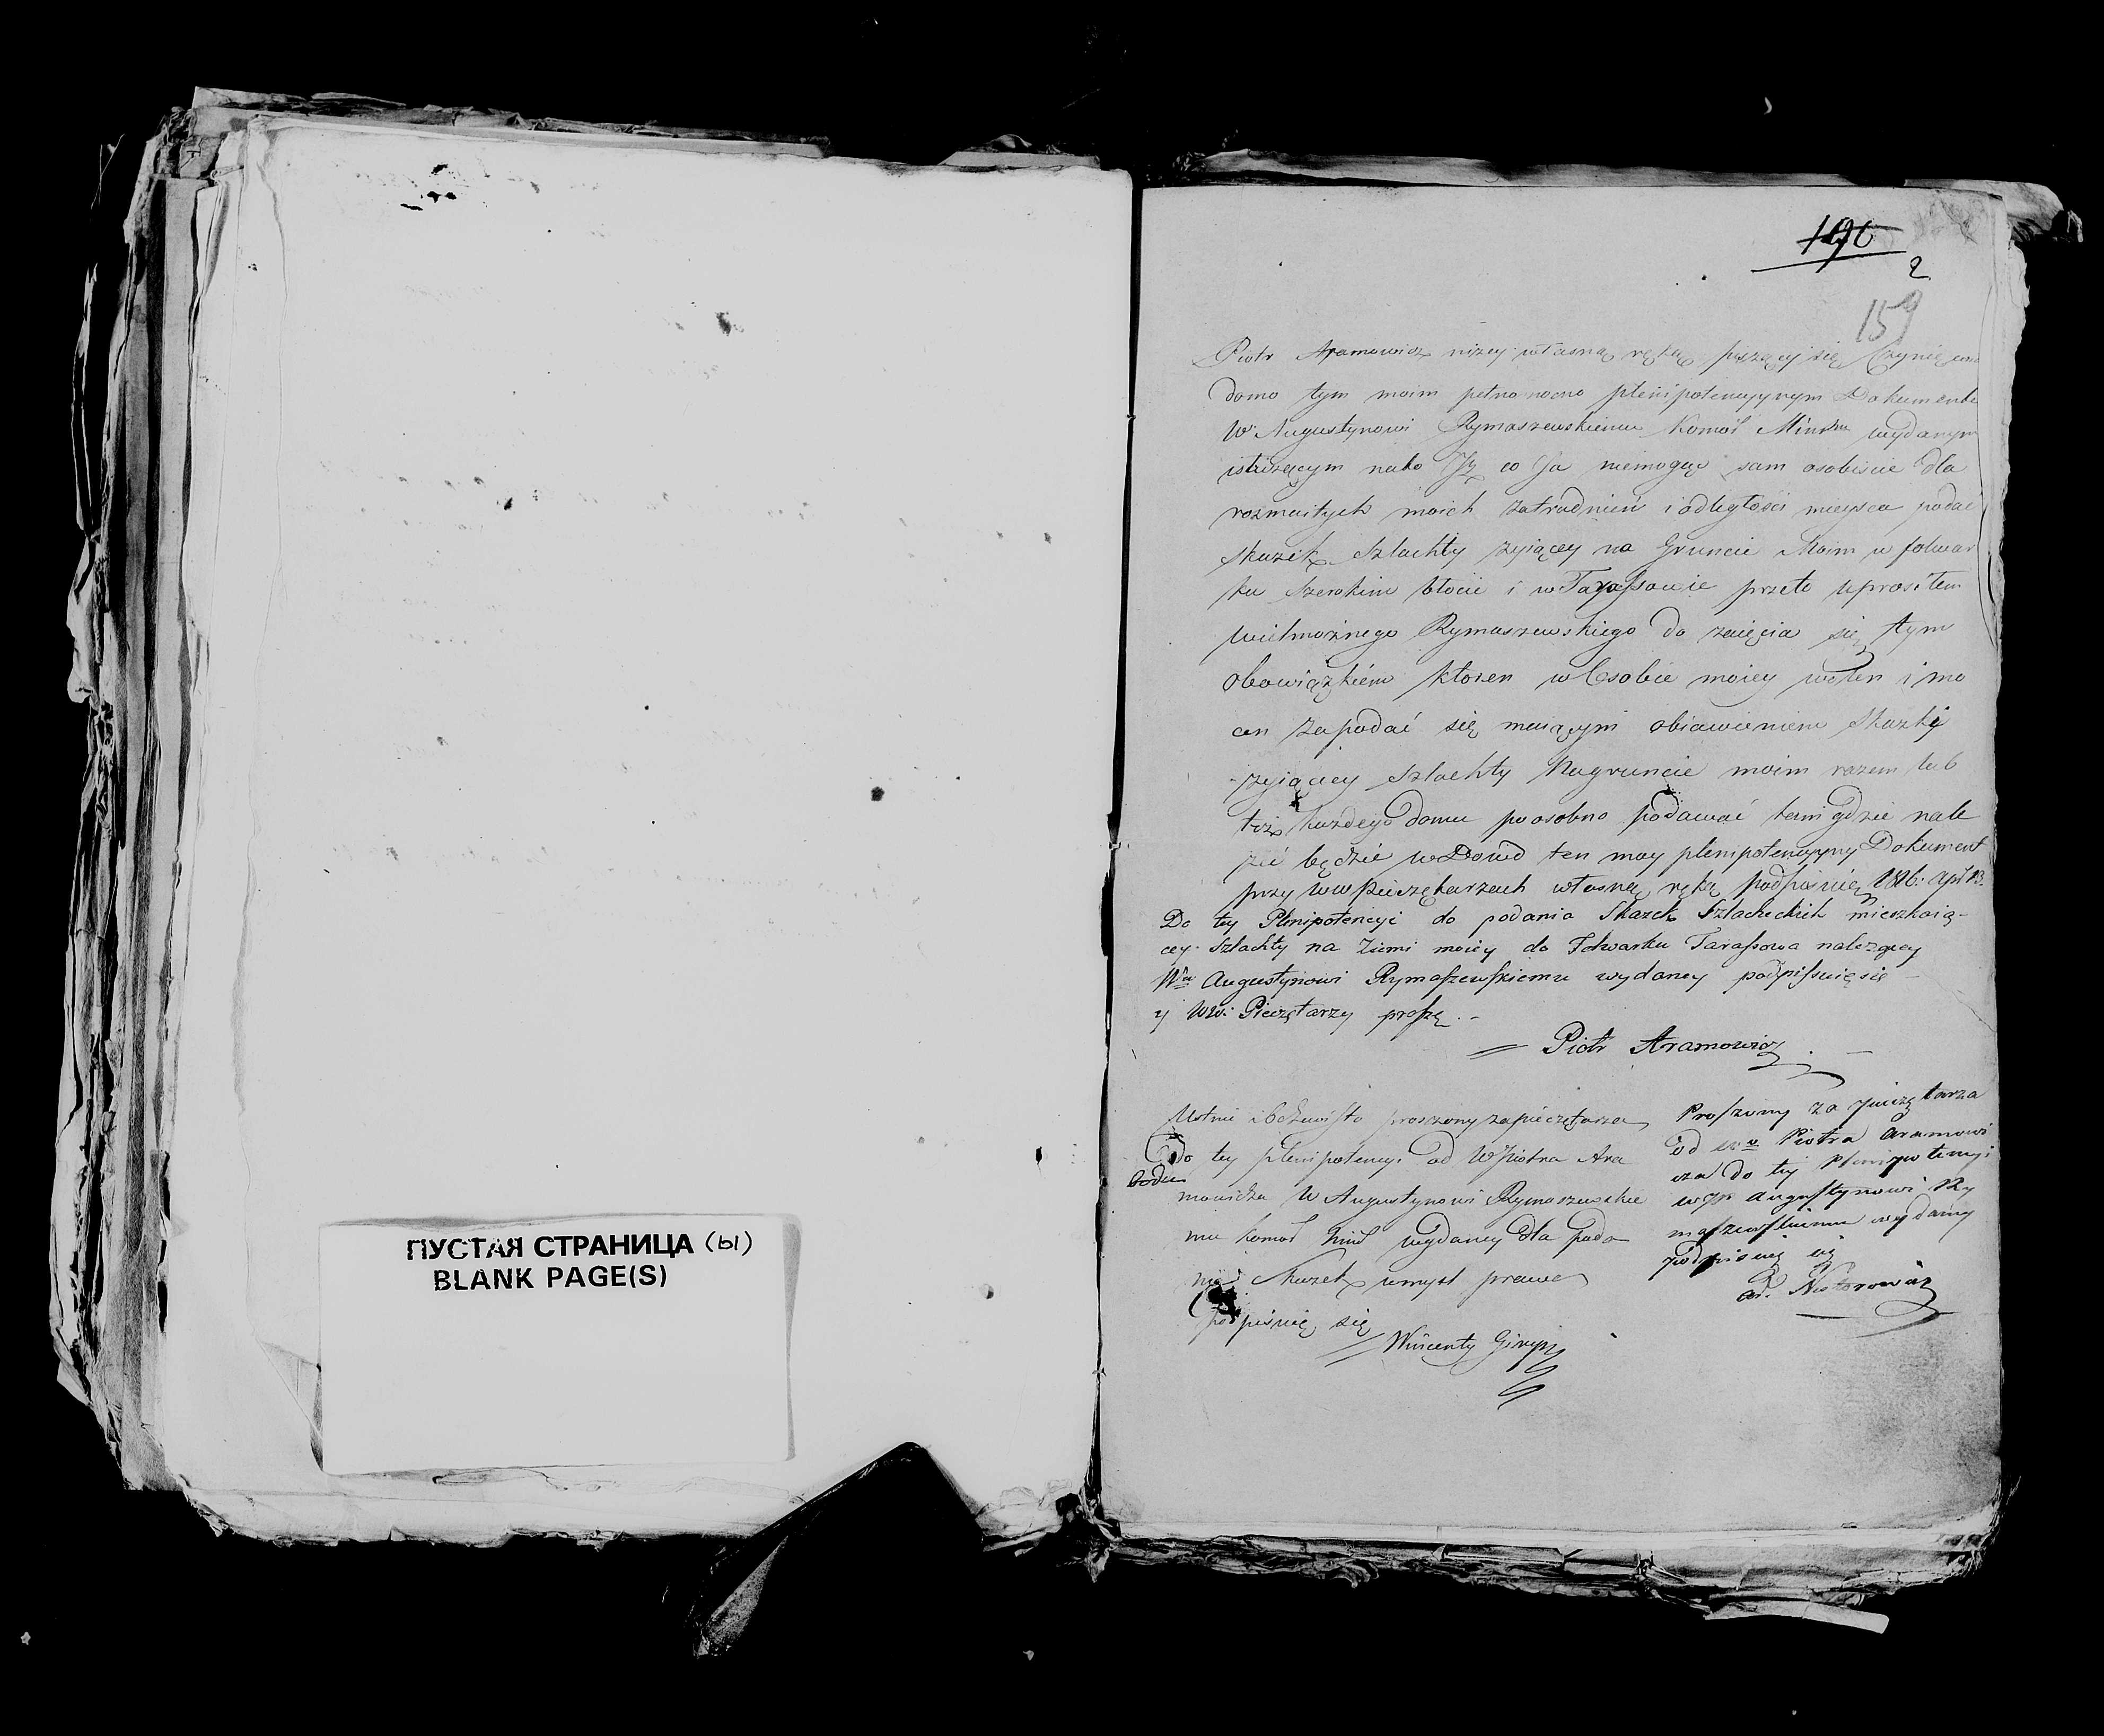 ПУСТАЯ СТРАНИЦА (ы)
BLANK PAGE(S)
196
2
159
Piotr Aramowicz niżey własną ręką piszący się Czynię wia
domo tym moim pełnomocno plenipotencyynym Dokumente
W Augustynowi Rymaszewskiemu Komor Minskm wydanym
służącym na to Iż co Ja niemogąc sam osobiscie dla
rozmaitych moich zatrudnień i odległości mieysca podać
Skazek Szlachty zyiącey na Gruncie Moim w folwar
ku Szerokim błocie i w Tarassowie przeto uprosiłem
Wielmożnego Rymaszewskiego do zaięcia się tym
obowiązkiem ktoren w Osobie moiey wolen i mo
cen zapodać się maiącym obiawieniem Skazkę
zyiącey Szlachty Na gruncie moim razem lub
też kazdego domu poosobno podawać tam gdzie nale
żeć będzie w Dowod ten moy plenipotencyyny Dokument
przy WW Pieczętarzach własną ręką podpisuię 1816: Apr 13.
Do tey Plenipotencyi do podania Skazek Szlacheckich mieszkaią-
cey Szlachty na Ziemi moiey do Folwarku Tarassowa należącey
Wu Augustynowi Rymaszewskiemu wydaney podpissuię się
y WW: Pieczętarzy proszę.-
Piotr Aramowicz
Ustnie i Oczewisto proszony za pieczętarza
do tey plenipotency: od W Piotra Ara
mowicza W Augustynowi Rymaszewskie
mu Komor wydaney dla poda
nia Skazek umysł prawa
podpisuię się
Wincenty Giryn
Proszony za pieczętarza
od Piotra Aramowi
cza do tey Plenipotencyi
Augustynowi Ry
maszewskiemu wydaney
podpisuię się
Nestorowicz